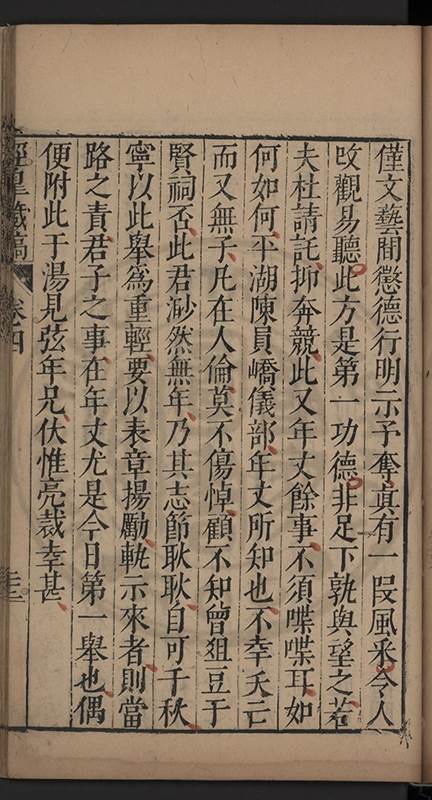 僅文藝間懲德行明示予奪眞有一叚風采令人
攺觀易聽此方是第一功德非足下孰與望之若
夫杜請託抑奔競此又年丈餘事不須喋喋耳如
何如何平湖陳員嶠儀部年丈所知也不幸夭亡
而又無子凡在人倫莫不傷悼顧不知曾俎豆于
賢祠否此君渺然無年乃其志節耿耿自可千秋
寧以此舉爲重輕要以表章揚勵軌示來者則當
路之責君子之事在年丈尤是今日第一舉也偶
便附此于湯見弦年兄伏惟亮裁幸甚
涇臯藏稿
卷之四